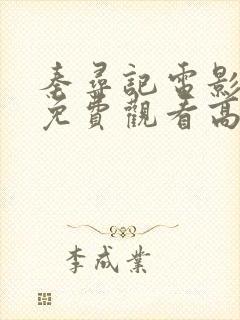 秦尋記電影
免費觀看高
李成業